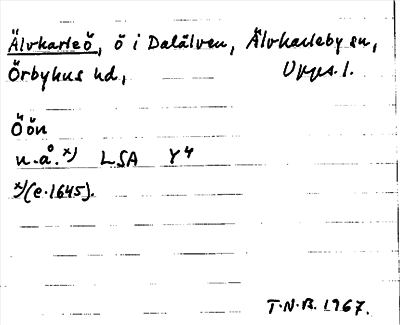 Älvkarleö, ö i Dalälven, Älvkarleby sn,
Örbyhus hd, Upps. l.
Öön
u.å. x) LSA Y4
x) (e. 1645).
T.N.B. 1967.